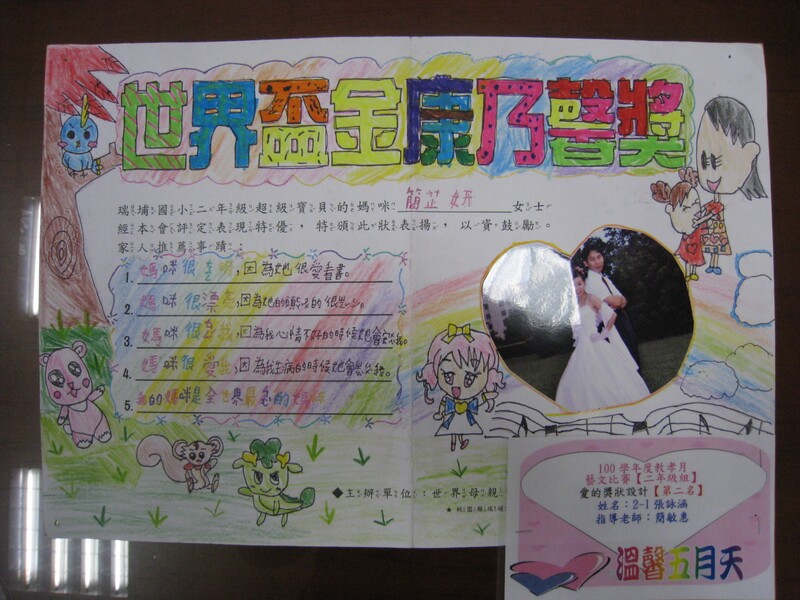 世界盃金康乃馨獎
瑞埔國小二年級超級寶貝的媽咪 簡芷妍 女士
經本會評定表現特優，特頒此狀表揚，以資鼓勵。
家人推薦事蹟：
1. 媽咪很 ，因為她很愛看書。
2. 媽咪很漂亮，因為她的眼 的很
3. 媽咪很 ，因為我心情不好的時候她會安 我。
4. 媽咪很愛 ，因為我生病的時候她會
5. 我的媽咪是全世界最 的媽
◆主辦單位：世界母親
100學年度教孝月
藝文比賽【二年級組】
愛的獎狀設計【第二名】
姓名：2-1張詠涵
指導老師：簡敏惠
溫馨五月天